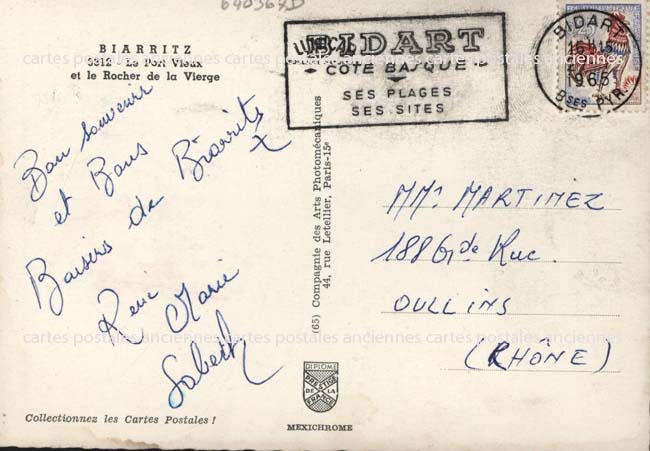 640367D
BIARRITZ
9312 - Le Port Vieux
et le Rocher de la Vierge
Bon souvenir
et Bons
Baisers de Biarritz
Rene Marie
BIDART
COTE BASQUE
SES PLAGES
SES SITES
BIDART
16H15
1965
Bses PYR.
MMr MARTINEZ
188 Gde Rue.
OULLINS
(RHÔNE)
(65) Compagnie des Arts Photomécaniques
44, rue Letellier, Paris-15e
cartes postales anciennes cartes postales anciennes cartes postales anciennes
cartes postales anciennes cartes postales anciennes cartes postales anciennes
DIPLOME
PRESTIGE
DE LA
FRANCE
Collectionnez les Cartes Postales !
MEXICHROME